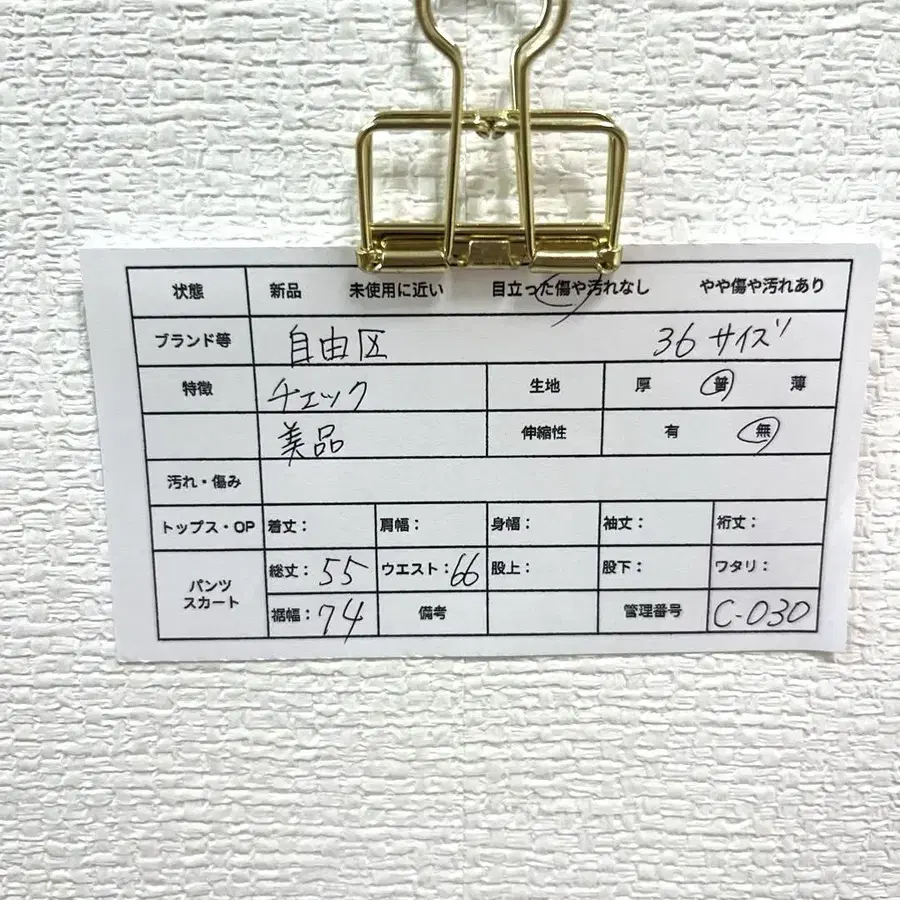 状態 新品 未使用に近い 目立った傷や汚れなし やや傷や汚れあり
ブランド等 自由区 36サイズ
特徴 チェック 生地 厚 普 薄
美品 伸縮性 有 無
汚れ・傷み
トップス・OP 着丈： 肩幅： 身幅： 袖丈： 裄丈：
パンツ スカート 総丈：55 ウエスト：66 股上： 股下： ワタリ：
裾幅：74 備考 管理番号 C-030